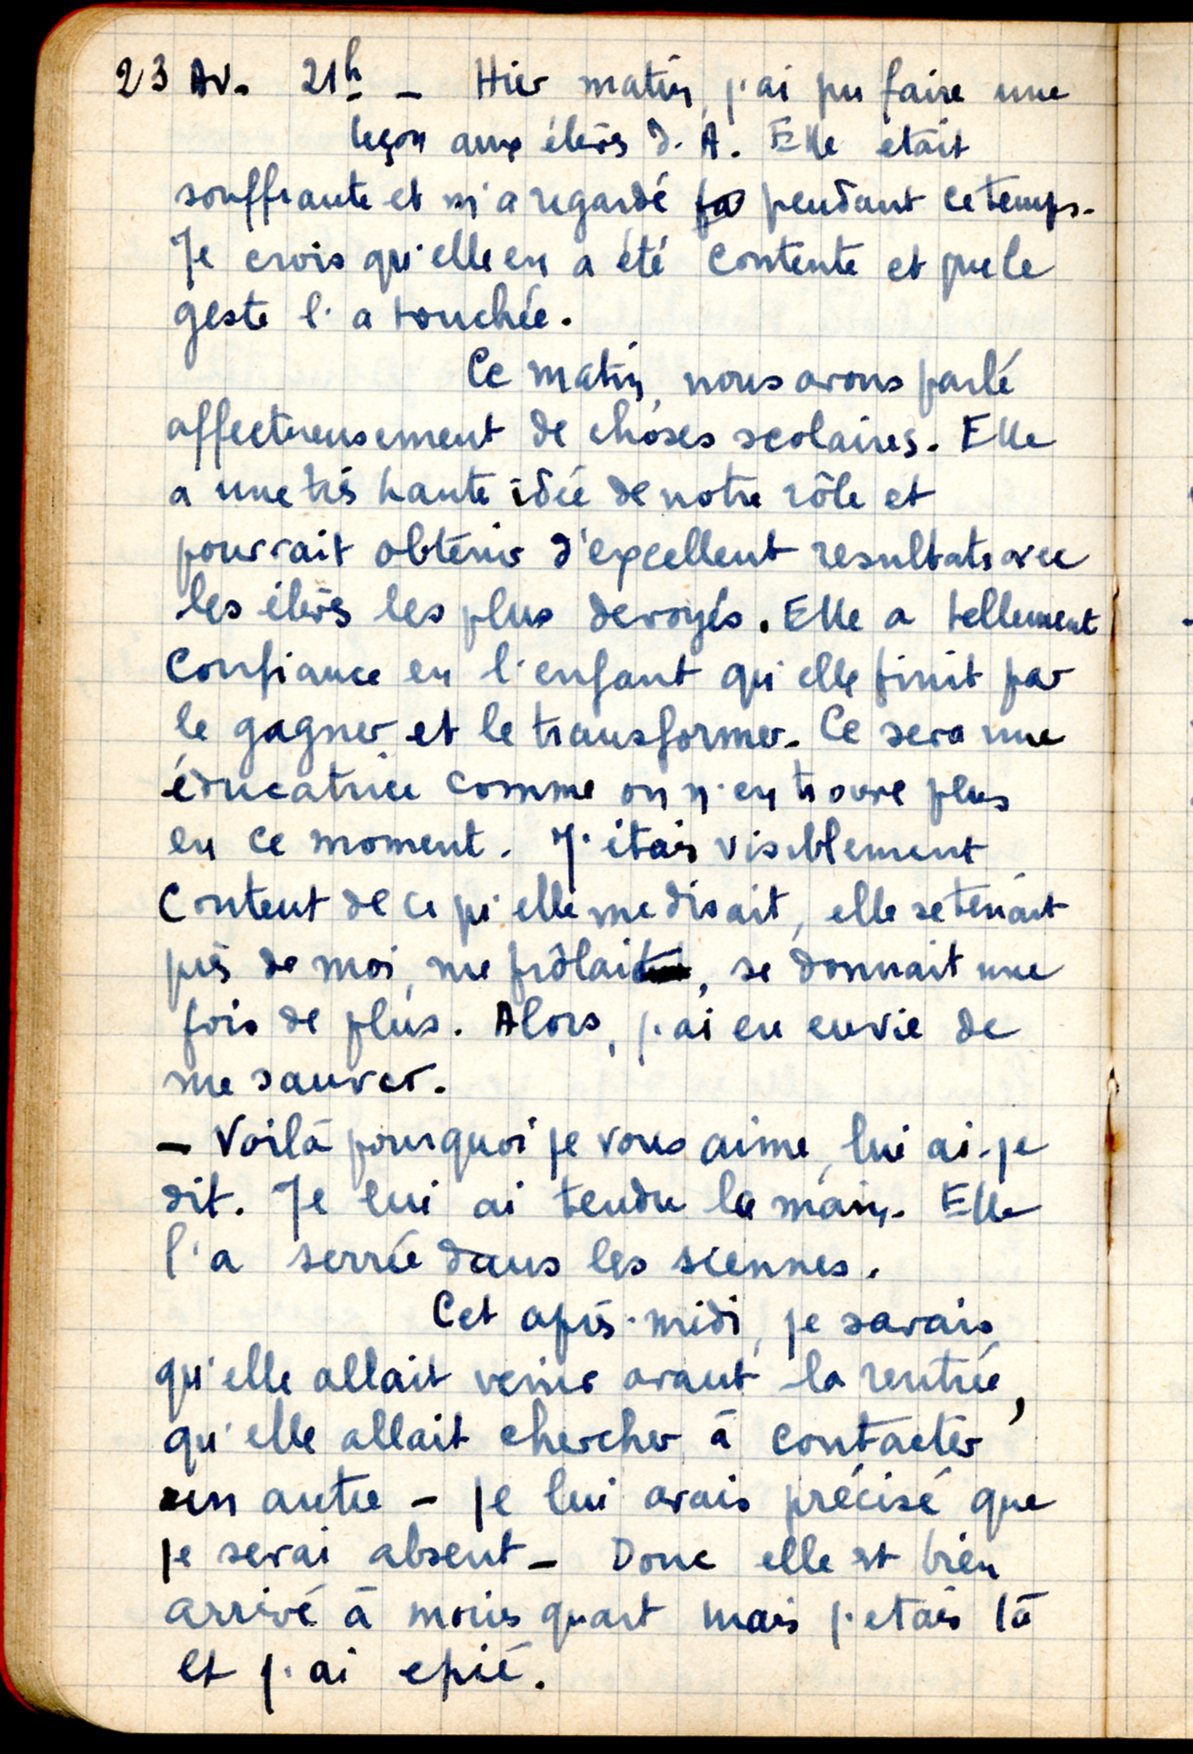 23 Av. 21h - Hier matin, j'ai pu faire une
leçon aux élèves d. A. Elle était
souffrante et m'a regardé pendant ce temps.
Je crois qu'elle en a été contente et que le
geste l'a touchée.
Ce matin, nous avons parlé
affectueusement de choses scolaires. Elle
a une très haute idée de notre rôle et
pourrait obtenir d'excellent resultats avec
les élèves les plus devoyés. Elle a tellement
confiance en l'enfant qu'elle finit par
le gagner et le transformer. Ce sera une
éducatrice comme on n'en trouve plus
en ce moment. J'étais visiblement
content de ce qu'elle me disait, elle se tenait
près de moi, me frôlait, se donnait une
fois de plus. Alors, j'ai eu envie de
me sauver.
- Voilà pourquoi je vous aime, lui ai-je
dit. Je lui ai tendu la main. Elle
l'a serrée dans les siennes.
Cet après-midi, je savais
qu'elle allait venir avant la rentrée,
qu'elle allait chercher à contacter
un autre - je lui avais précisé que
je serai absent - Donc elle est bien
arrivé à moins quart mais j'etais là
et j'ai epié.